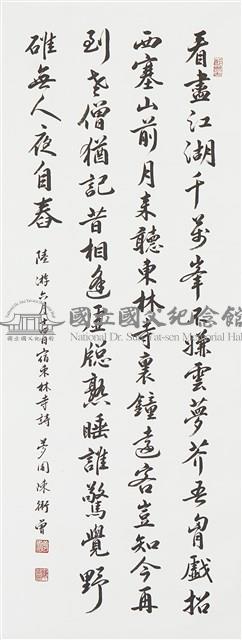 看盡江湖千萬峯不嫌雲夢芥吾胷戲招
西塞山前月來聽東林寺裏鐘遠客豈知今再
到老僧猶記昔相逢虛牕熟睡誰驚覺野
碓無人夜自舂
陸游六月十四日宿東林寺詩 陳
國立國父紀念館
National Dr. Sun Yat-sen Memorial Hall